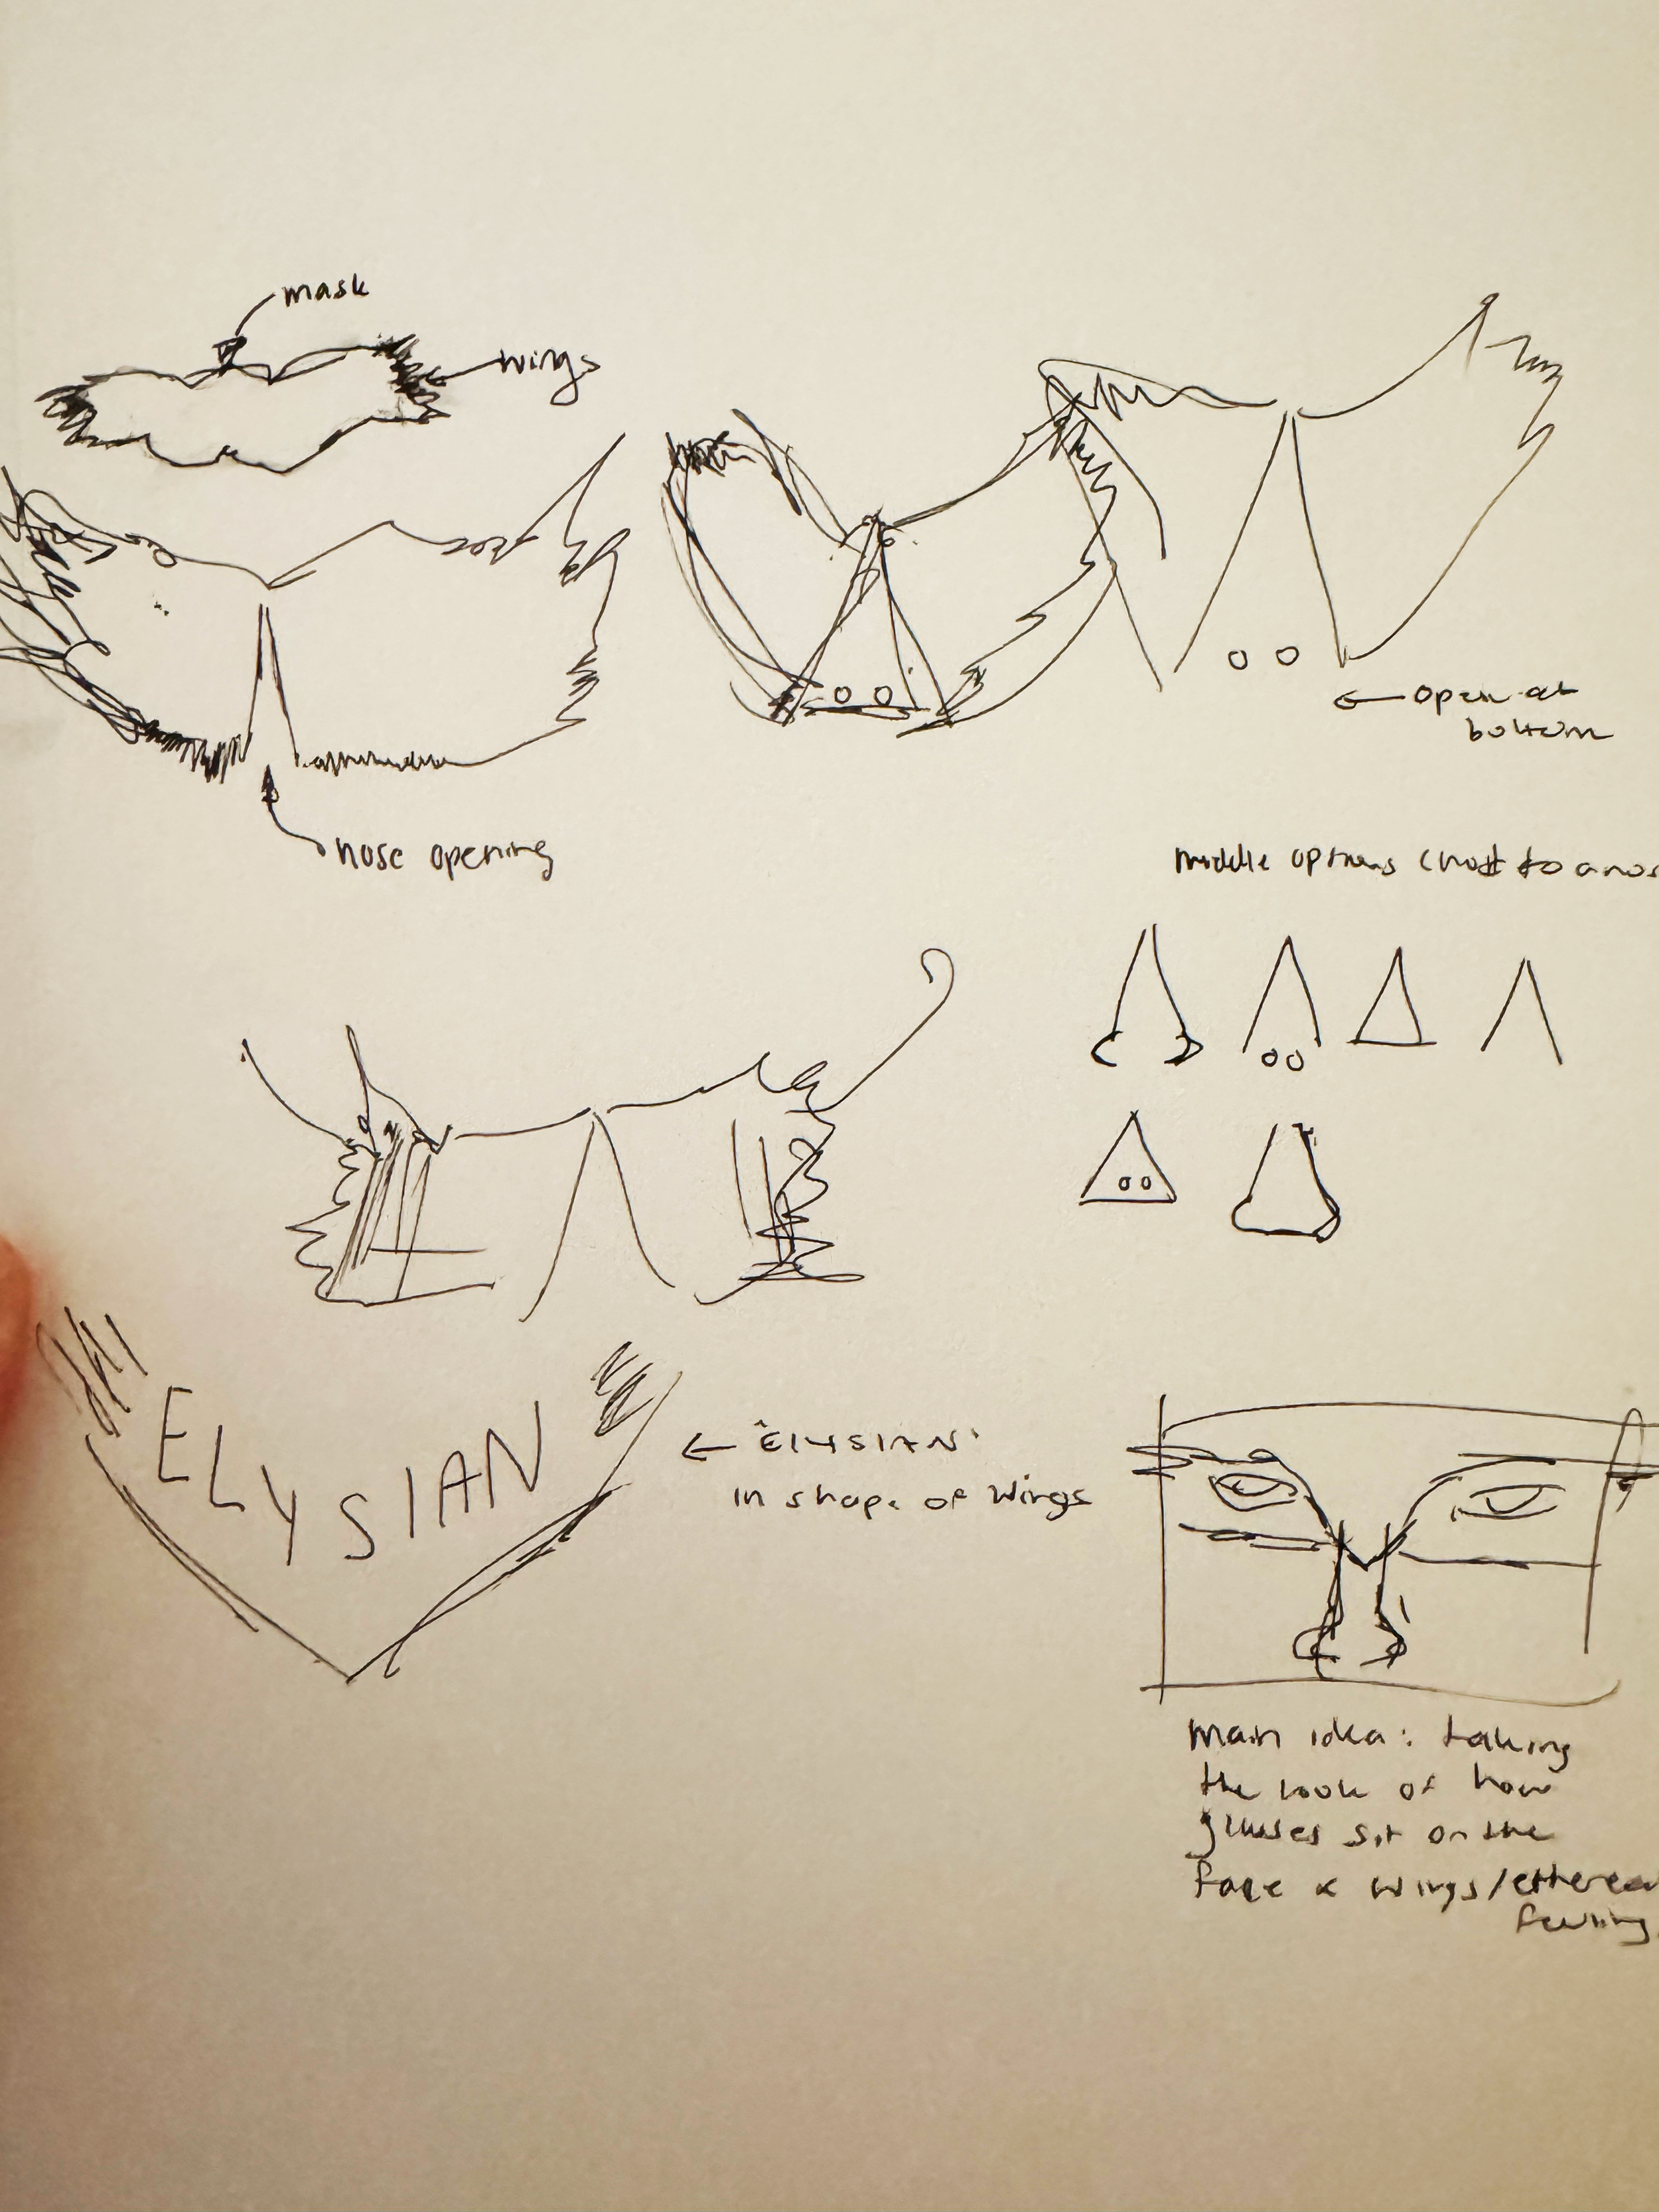 mask
wings
open at
bottom
nose opening
middle options
ELYSIAN
← "ELYSIAN"
in shape of wings
main idea: taking
the look of how
glasses sit on the
face x wings/ethereal
feeling.